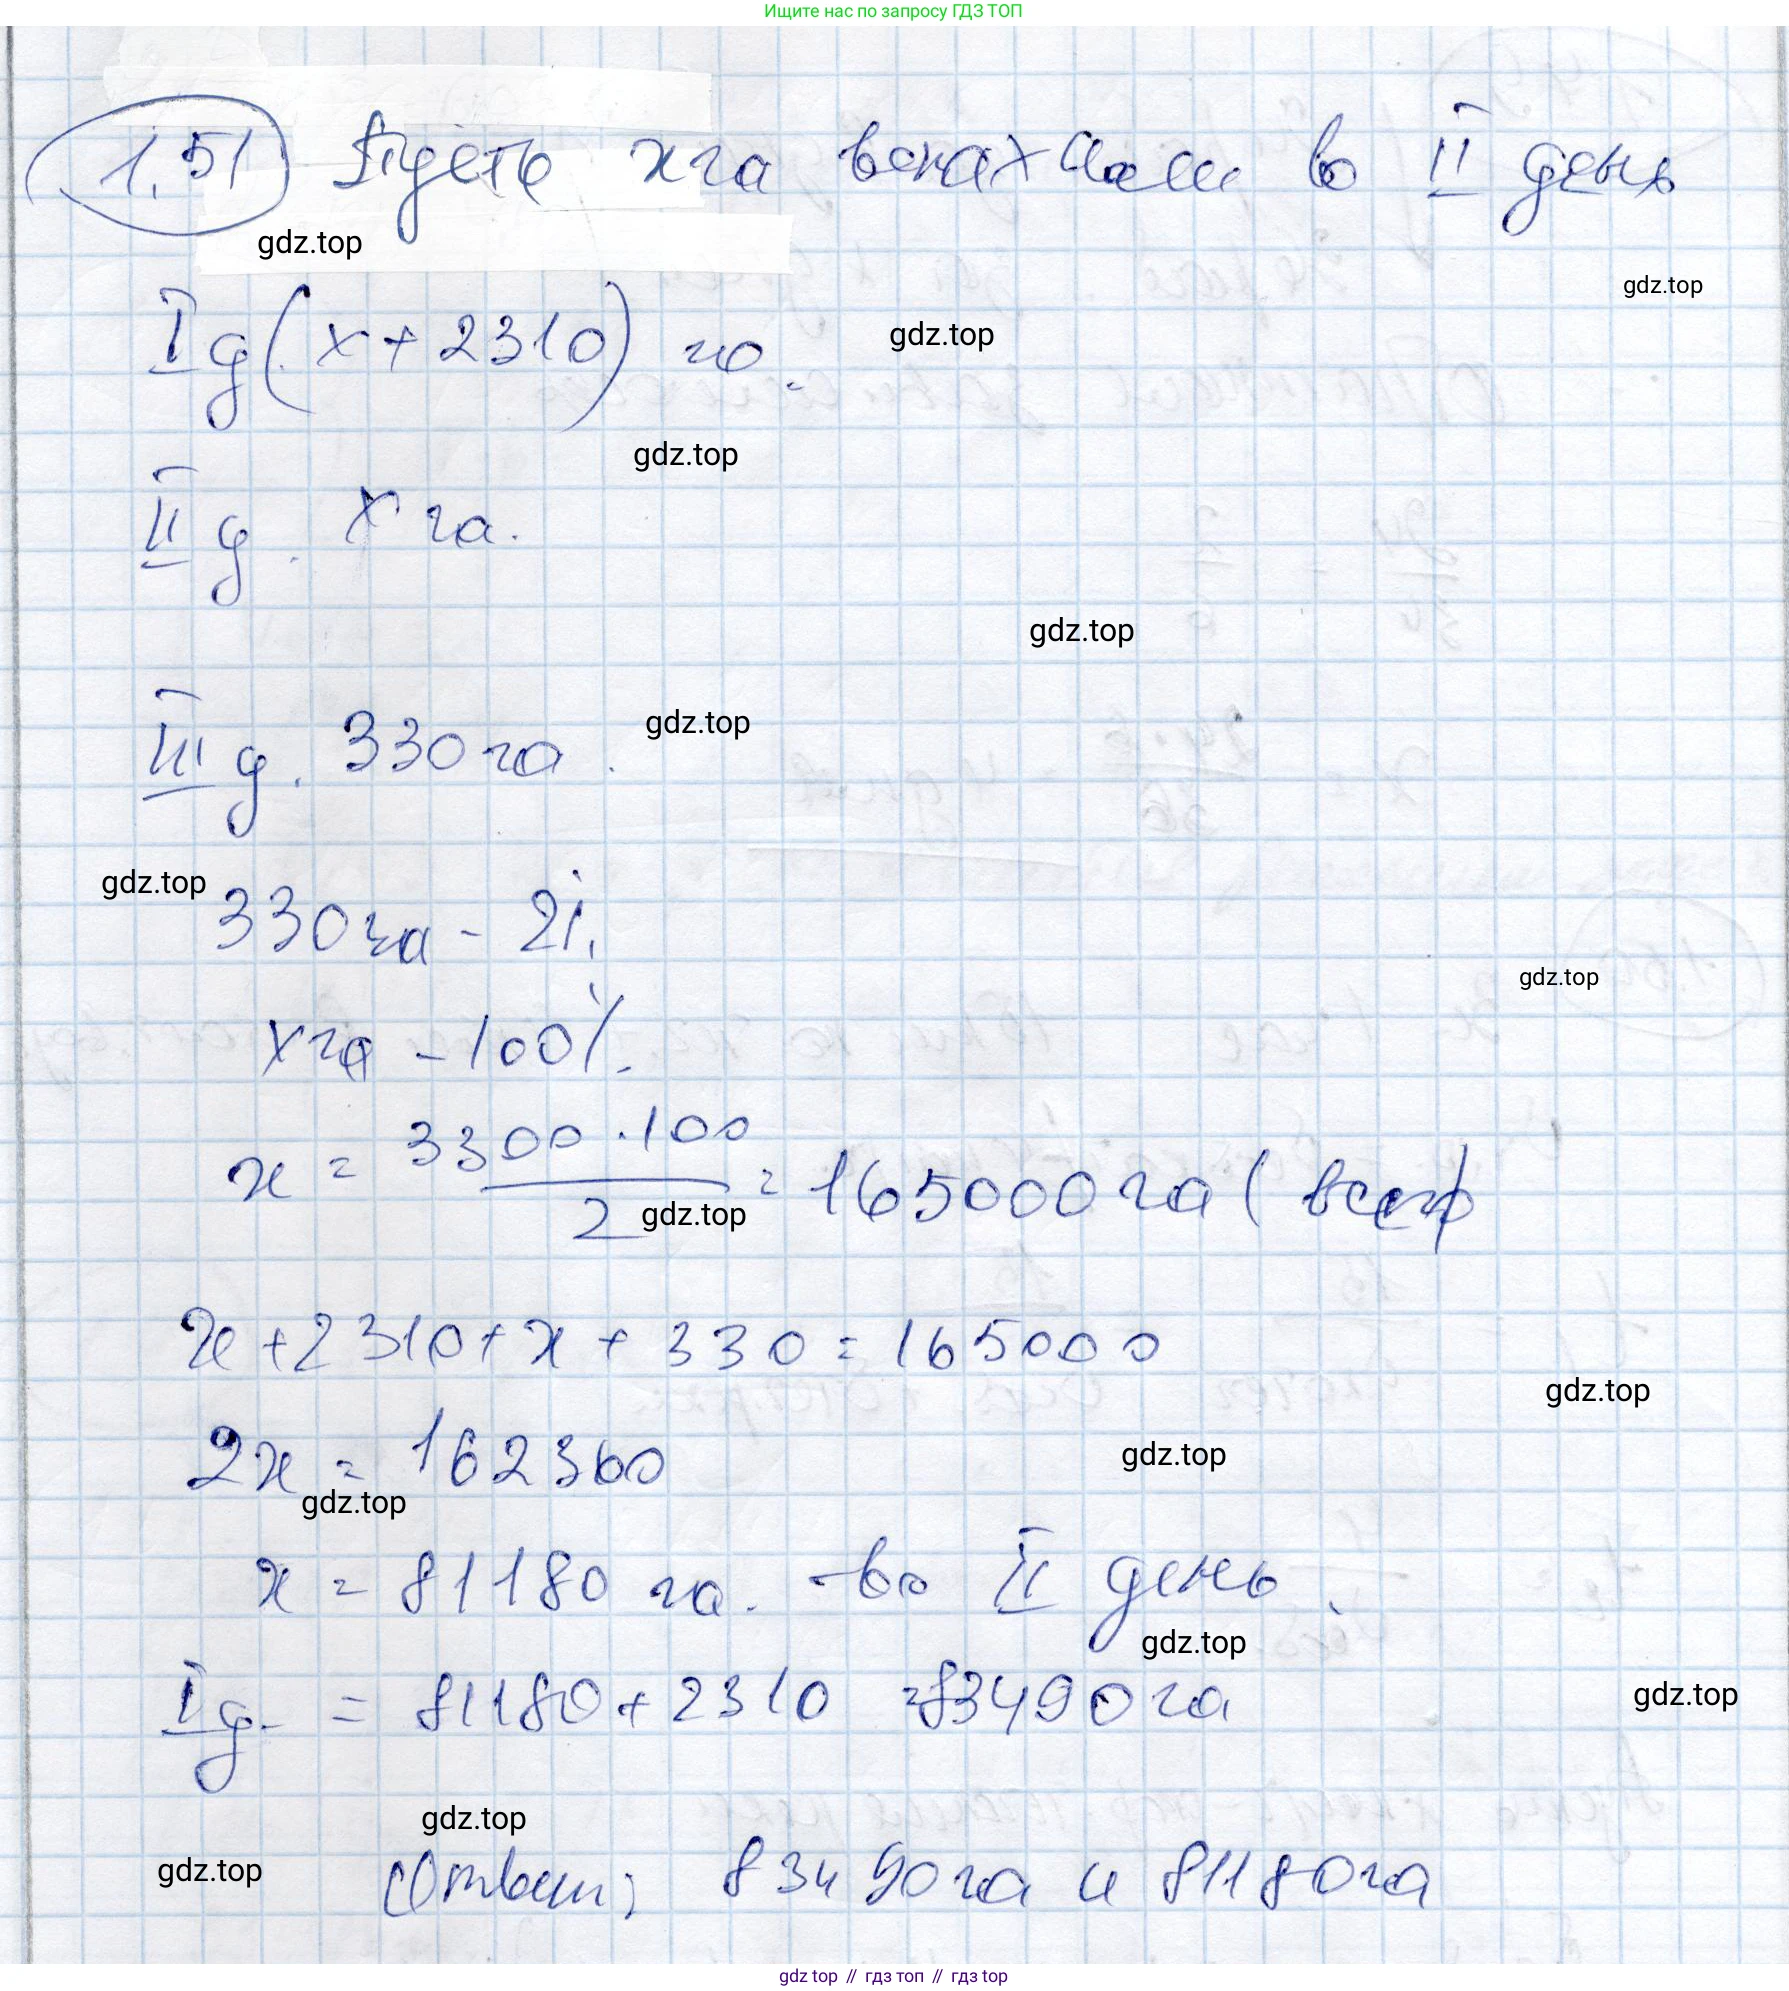 Ищите нас по запросу ГДЗ ТОП
1.51 Пусть x га вспахали во II день
gdz.top
gdz.top
I д (x + 2310) га.
gdz.top
gdz.top
II д. x га.
gdz.top
III д. 330 га.
gdz.top
gdz.top
330 га - 2%.
gdz.top
x га - 100%.
x = 3300 · 100 / 2 = 165000 га (всего)
gdz.top
x + 2310 + x + 330 = 165000
gdz.top
2x = 162360
gdz.top
gdz.top
x = 81180 га. - во II день.
gdz.top
I д. = 81180 + 2310 = 83490 га
gdz.top
gdz.top
gdz.top
Ответ: 83490 га и 81180 га
gdz top // гдз топ // гдз top